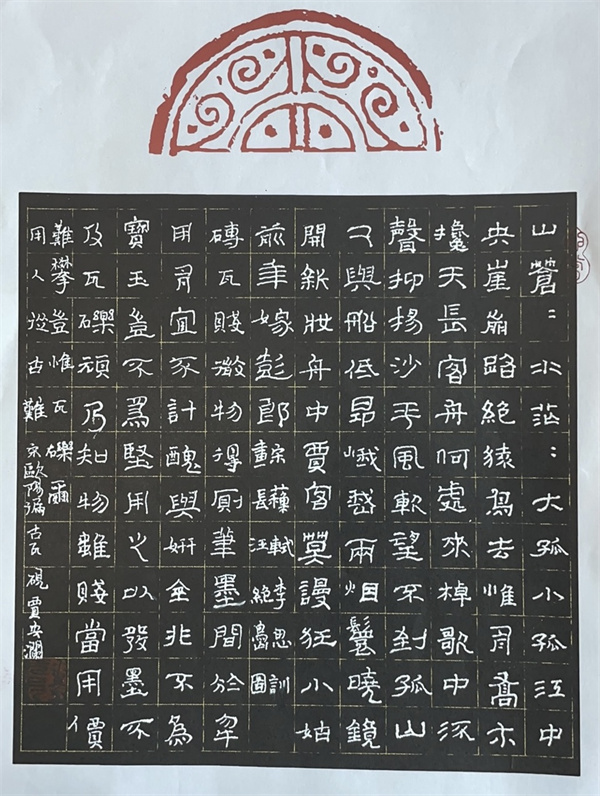 山蒼〻水茫〻大孤小孤江中
央崖崩路絕猿鳥去惟有喬木
攙天長客舟何處來棹歌中流
聲抑揚沙平風軟望不到孤山
久與船低昂峨峨兩烟鬟曉鏡
開新妝舟中賈客莫謾狂小姑
前年嫁彭郎
宋蘇軾李思訓
畫長江絕島圖
磚瓦賤微物得廁筆墨間於物
用有宜不計醜與妍金非不為
寶玉豈不為堅用之以發墨不
及瓦礫頑乃知物雖賤當用價
難攀豈惟瓦礫爾
用人從古難宋歐陽脩古瓦硯賈安瀾